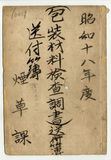 昭和十八年度
包装材料検査調書送付簿
送付簿
煙草課